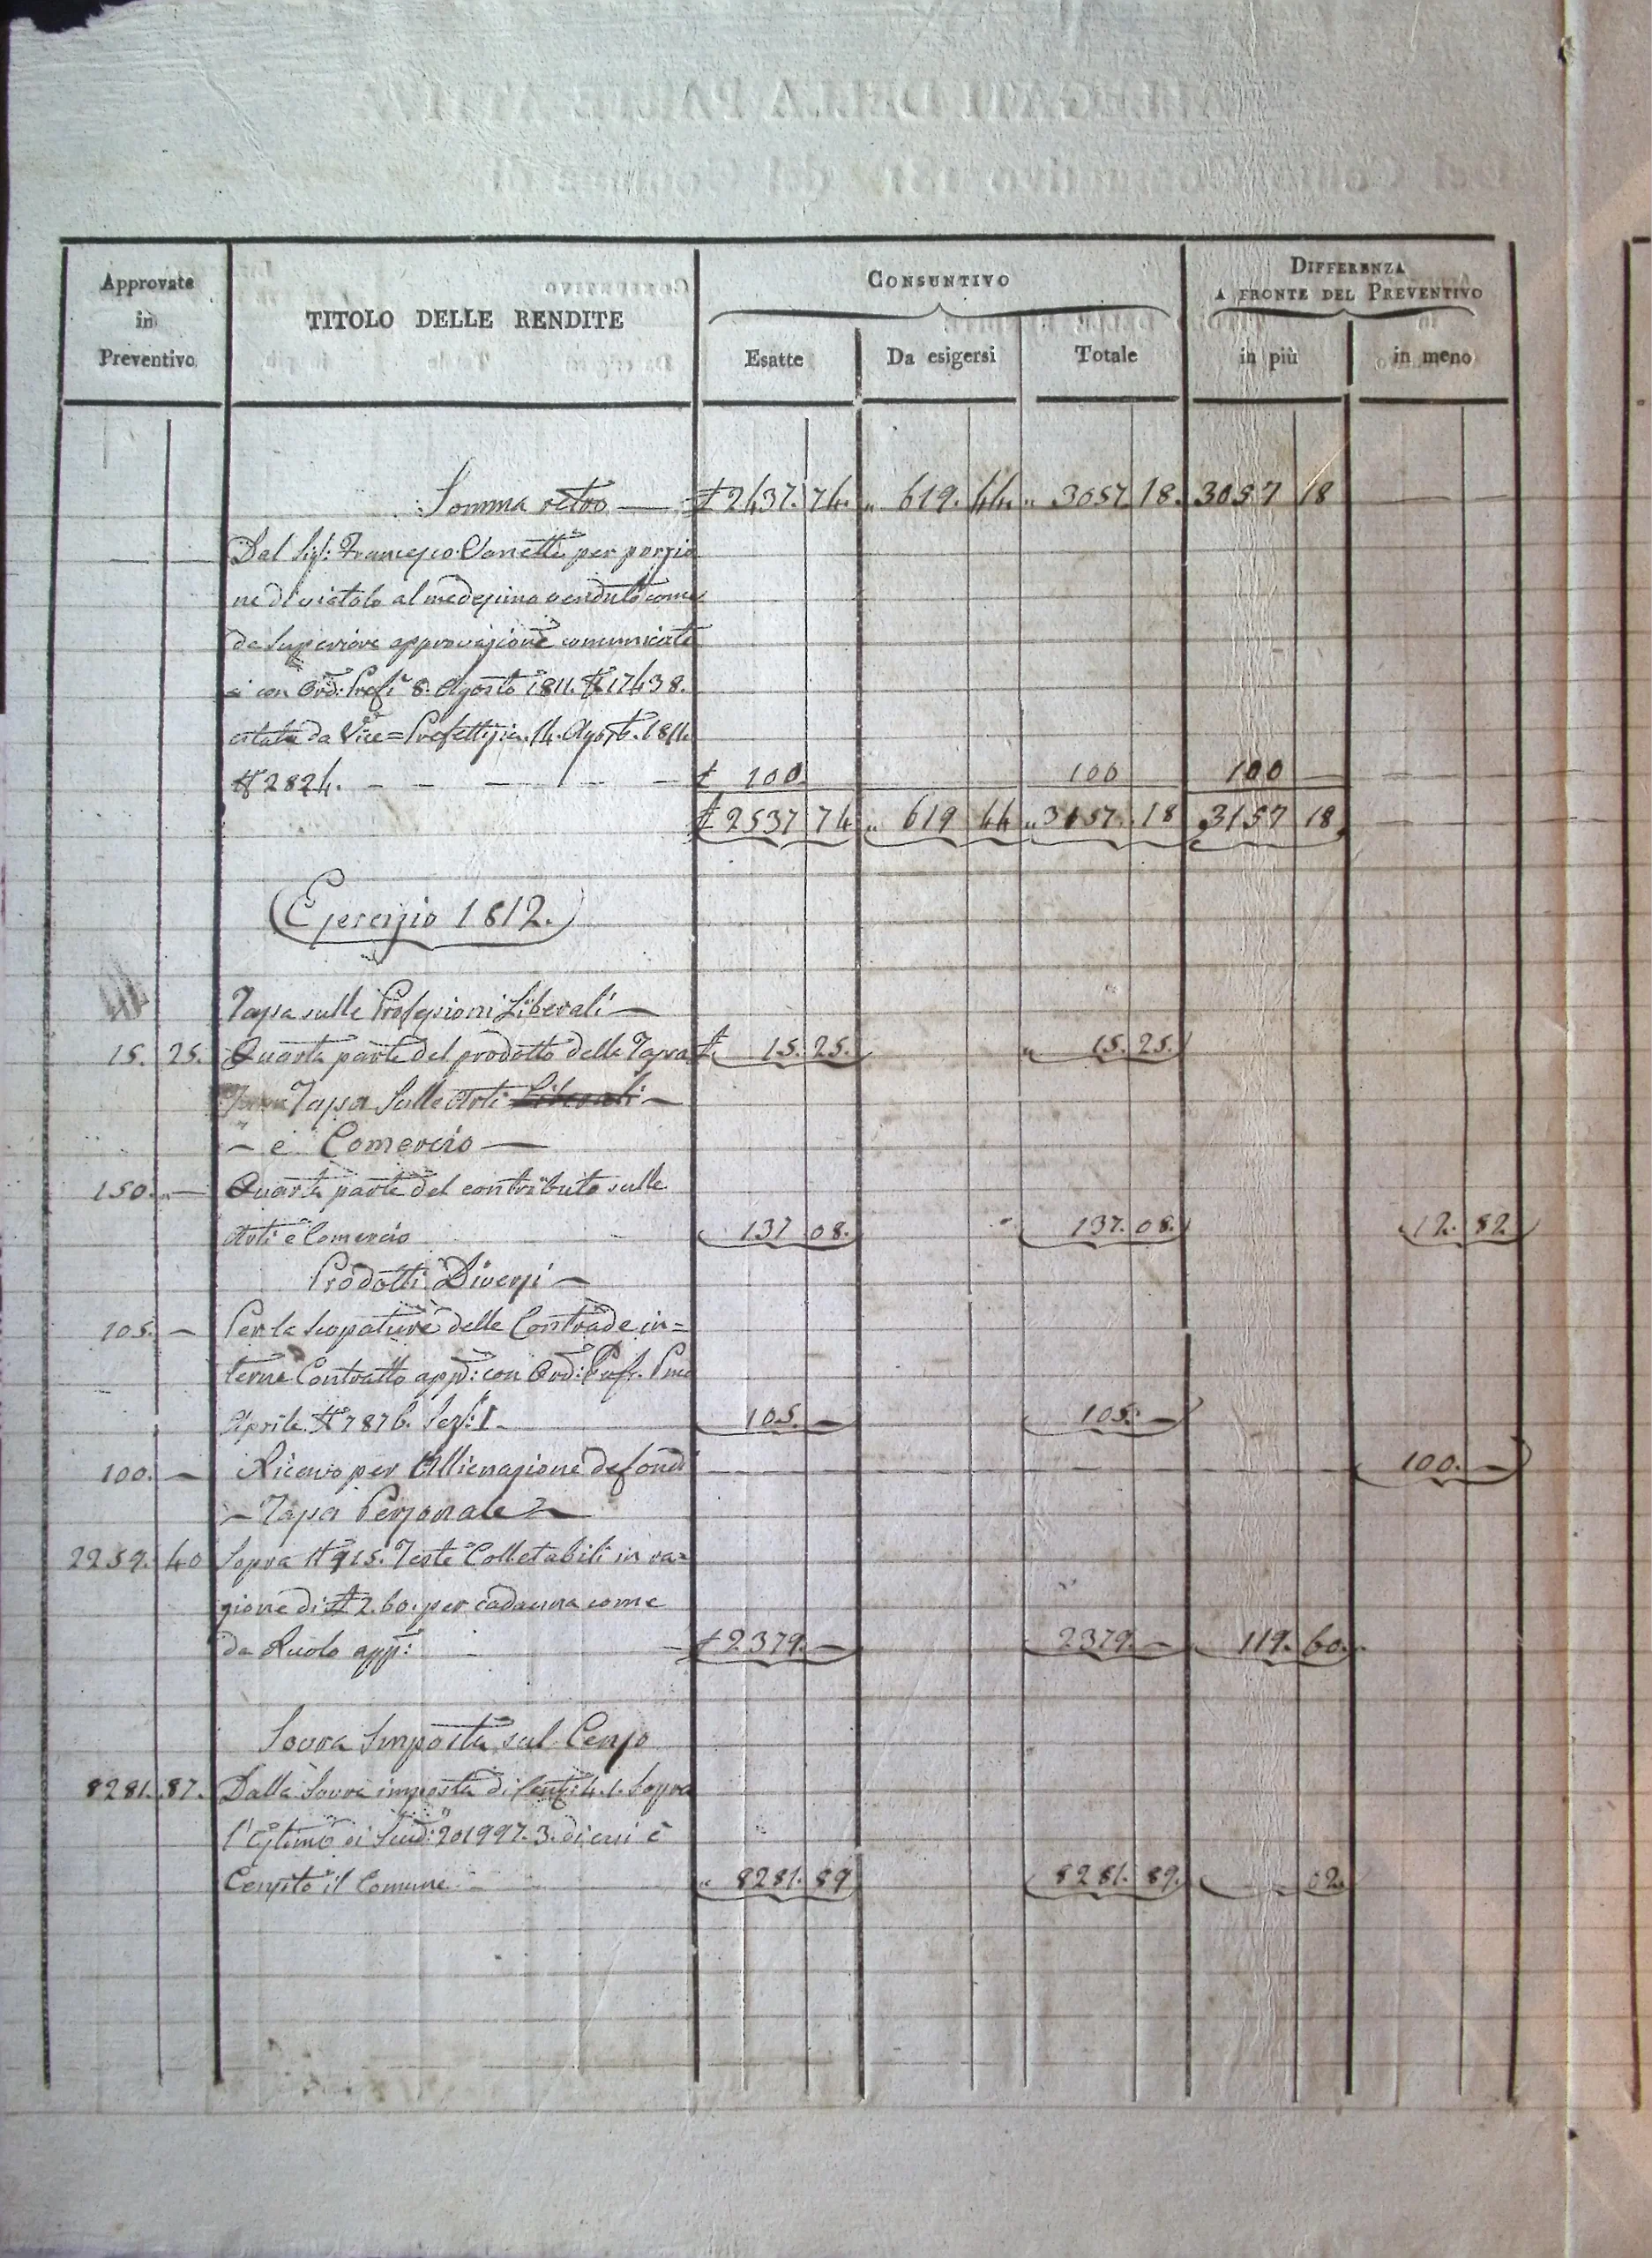 Approvate
in
Preventivo
TITOLO DELLE RENDITE
CONSUNTIVO
DIFFERENZA
A FRONTE DEL PREVENTIVO
Esatte
Da esigersi
Totale
in più
in meno
Somma retro — £ 2437. 74. „ 619. 44. „ 3057 18. 3057 18 —
Dal Sig: Francesco Vanetti per porzio
ne di viotolo al medesimo venduto come
da Superiore approvazione comunicata
si con Ord: Pref. 8. Agosto 1811. N 17438.
Vice=Prefettizia. 14. Agosto. 1811.
N 2824. — — — — £ 100 100 100 — —
£ 2537 74 „ 619 44 „ 3157. 18 3157 18 —
Esercizio 1812.
Tassa sulle Professioni Liberali —
15. 25. Quarta parte del prodotto della Tassa £ 15. 25. „ 15. 25.
Tassa sulle Arti Liberali —
— e Comercio —
150. — Quarta parte del contributo sulle
Arti e Comercio 137 08. 137. 08. 12. 82
Prodotti Diversi —
105. — Per la scopature delle Contrade in=
terne Contratto app: con Ord: Pref. Pmo
Aprile N 7876. Sez: I — 105. — 105. —
100. — Ricavo per Allienazione de fondi 100. —
— Tassa Personale —
2259. 40 Sopra N 915. Teste Colletabili in ra=
gione di £ 2. 60. per cadauna come
da Ruolo app: — £ 2379. — 2379. — 119. 60.
Sovra Imposta sul Censo
8281. 87. Dalla Sovra imposta di Cent: 4. 1. sopra
l'Estimo di Scudi 201997. 3. di cui è
Censito il Comune — „ 8281. 89 8281. 89. 02.